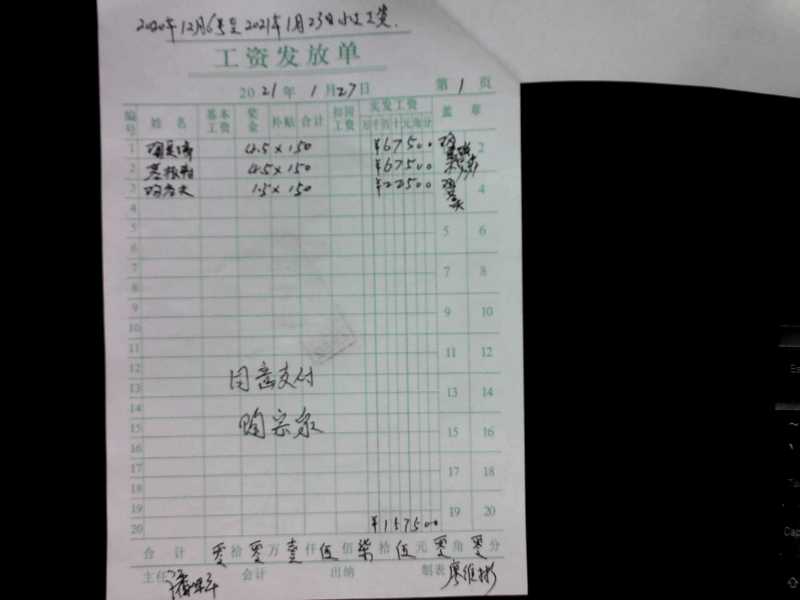 2020年12月6号至2021年1月23日小工工资.
工资发放单
2021年1月27日 第1页
编号 姓名 基本工资 奖金 补贴 合计 扣回工资 实发工资 盖章
万千百十元角分
1 4.5×150 ¥67500 2
2 4.5×150 ¥67500
3 1.5×150 ¥22500 4
4
5 5 6
6
7 7 8
8
9 9 10
10
11 11 12
12
13 同意支付 13 14
14
15 陶宗家 15 16
16
17 17 18
18
19 19 20
20 ¥157500
合计 零拾零万壹仟伍佰柒拾伍元零角零分
主任 会计 出纳 制表 廖维彬